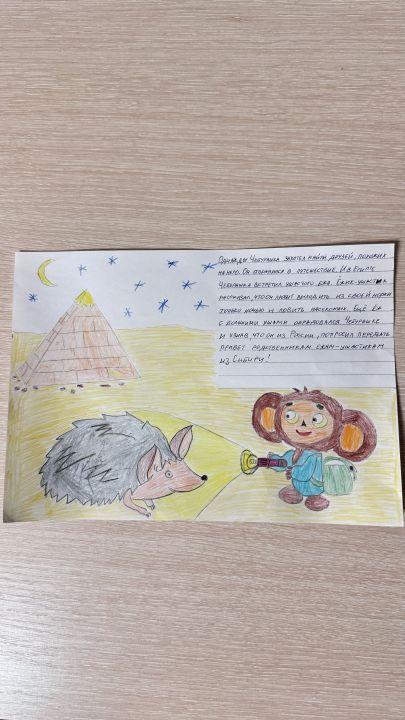 Однажды Чебурашка захотел найти друзей, похожих
на него. Он отправился в путешествие. И в Египте
Чебурашка встретил ушастого ежа. Ёжик-ушастик
рассказал, что он любит выходить из своей норки
только ночью и ловить насекомых. Ещё ёж
с большими ушами обрадовался Чебурашке
и узнав, что он из России, попросил передать
привет родственникам ежам-ушастикам
из Сибири!